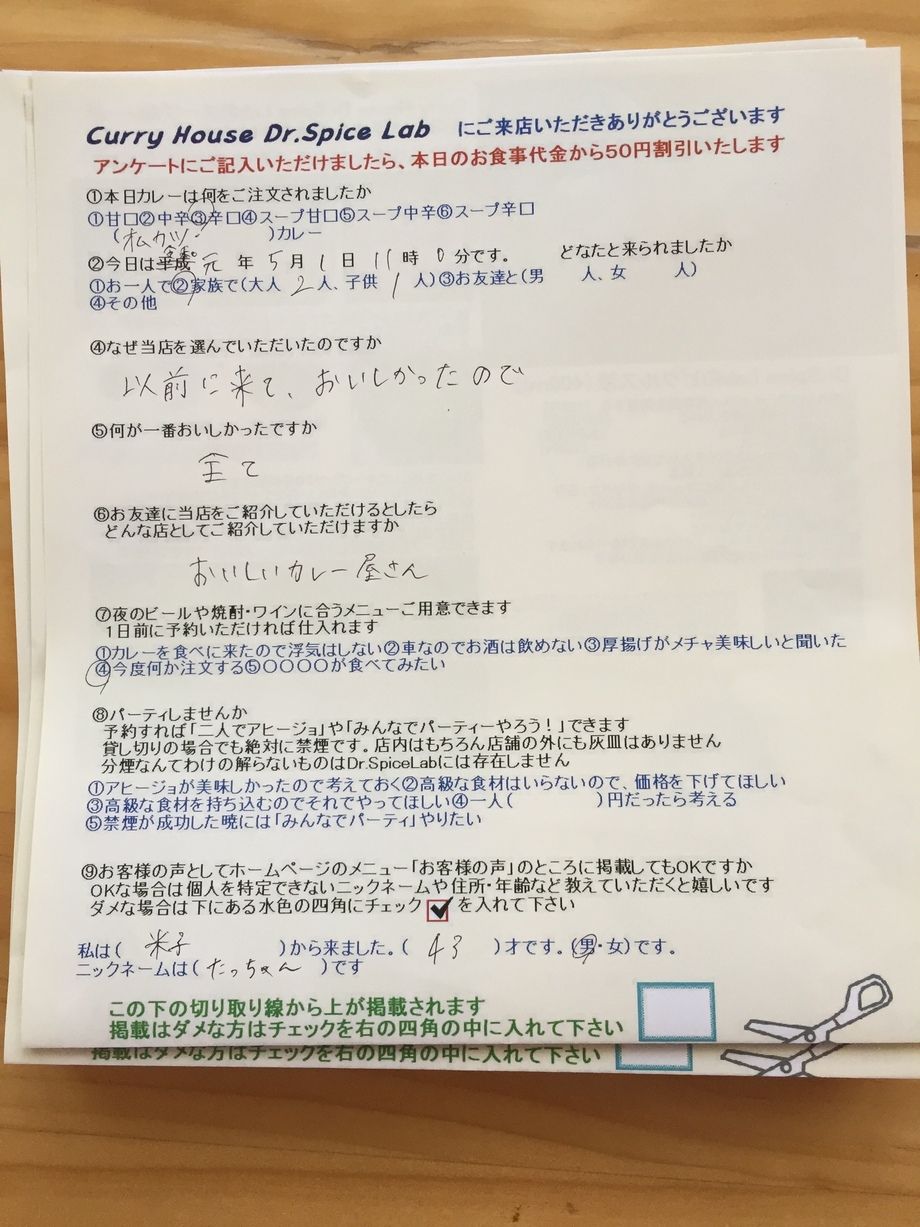 Curry House Dr.Spice Lab にご来店いただきありがとうございます
アンケートにご記入いただけましたら、本日のお食事代金から50円割引いたします
①本日カレーは何をご注文されましたか
①甘口②中辛③辛口④スープ甘口⑤スープ中辛⑥スープ辛口
(カツ )カレー
②今日は平成元年5月1日11時0分です。 どなたと来られましたか
①お一人で②家族で(大人2人、子供1人)③お友達と(男 人、女 人)
④その他
④なぜ当店を選んでいただいたのですか
以前に来て、おいしかったので
⑤何が一番おいしかったですか
全て
⑥お友達に当店をご紹介していただけるとしたら
どんな店としてご紹介していただけますか
おいしいカレー屋さん
⑦夜のビールや焼酎・ワインに合うメニューご用意できます
1日前に予約いただければ仕入れます
①カレーを食べに来たので浮気はしない②車なのでお酒は飲めない③厚揚げがメチャ美味しいと聞いた
④今度何か注文する⑤〇〇〇〇が食べてみたい
⑧パーティしませんか
予約すれば「二人でアヒージョ」や「みんなでパーティーやろう!」できます
貸し切りの場合でも絶対に禁煙です。店内はもちろん店舗の外にも灰皿はありません
分煙なんてわけの解らないものはDr.SpiceLabには存在しません
①アヒージョが美味しかったので考えておく②高級な食材はいらないので、価格を下げてほしい
③高級な食材を持ち込むのでそれでやってほしい④一人( )円だったら考える
⑤禁煙が成功した暁には「みんなでパーティ」やりたい
⑨お客様の声としてホームページのメニュー「お客様の声」のところに掲載してもOKですか
OKな場合は個人を特定できないニックネームや住所・年齢など教えていただくと嬉しいです
ダメな場合は下にある水色の四角にチェック を入れて下さい
私は(米子)から来ました。(43)才です。(男・女)です。
ニックネームは(たっちゃん)です
この下の切り取り線から上が掲載されます
掲載はダメな方はチェックを右の四角の中に入れて下さい
掲載はダメな方はチェックを右の四角の中に入れて下さい